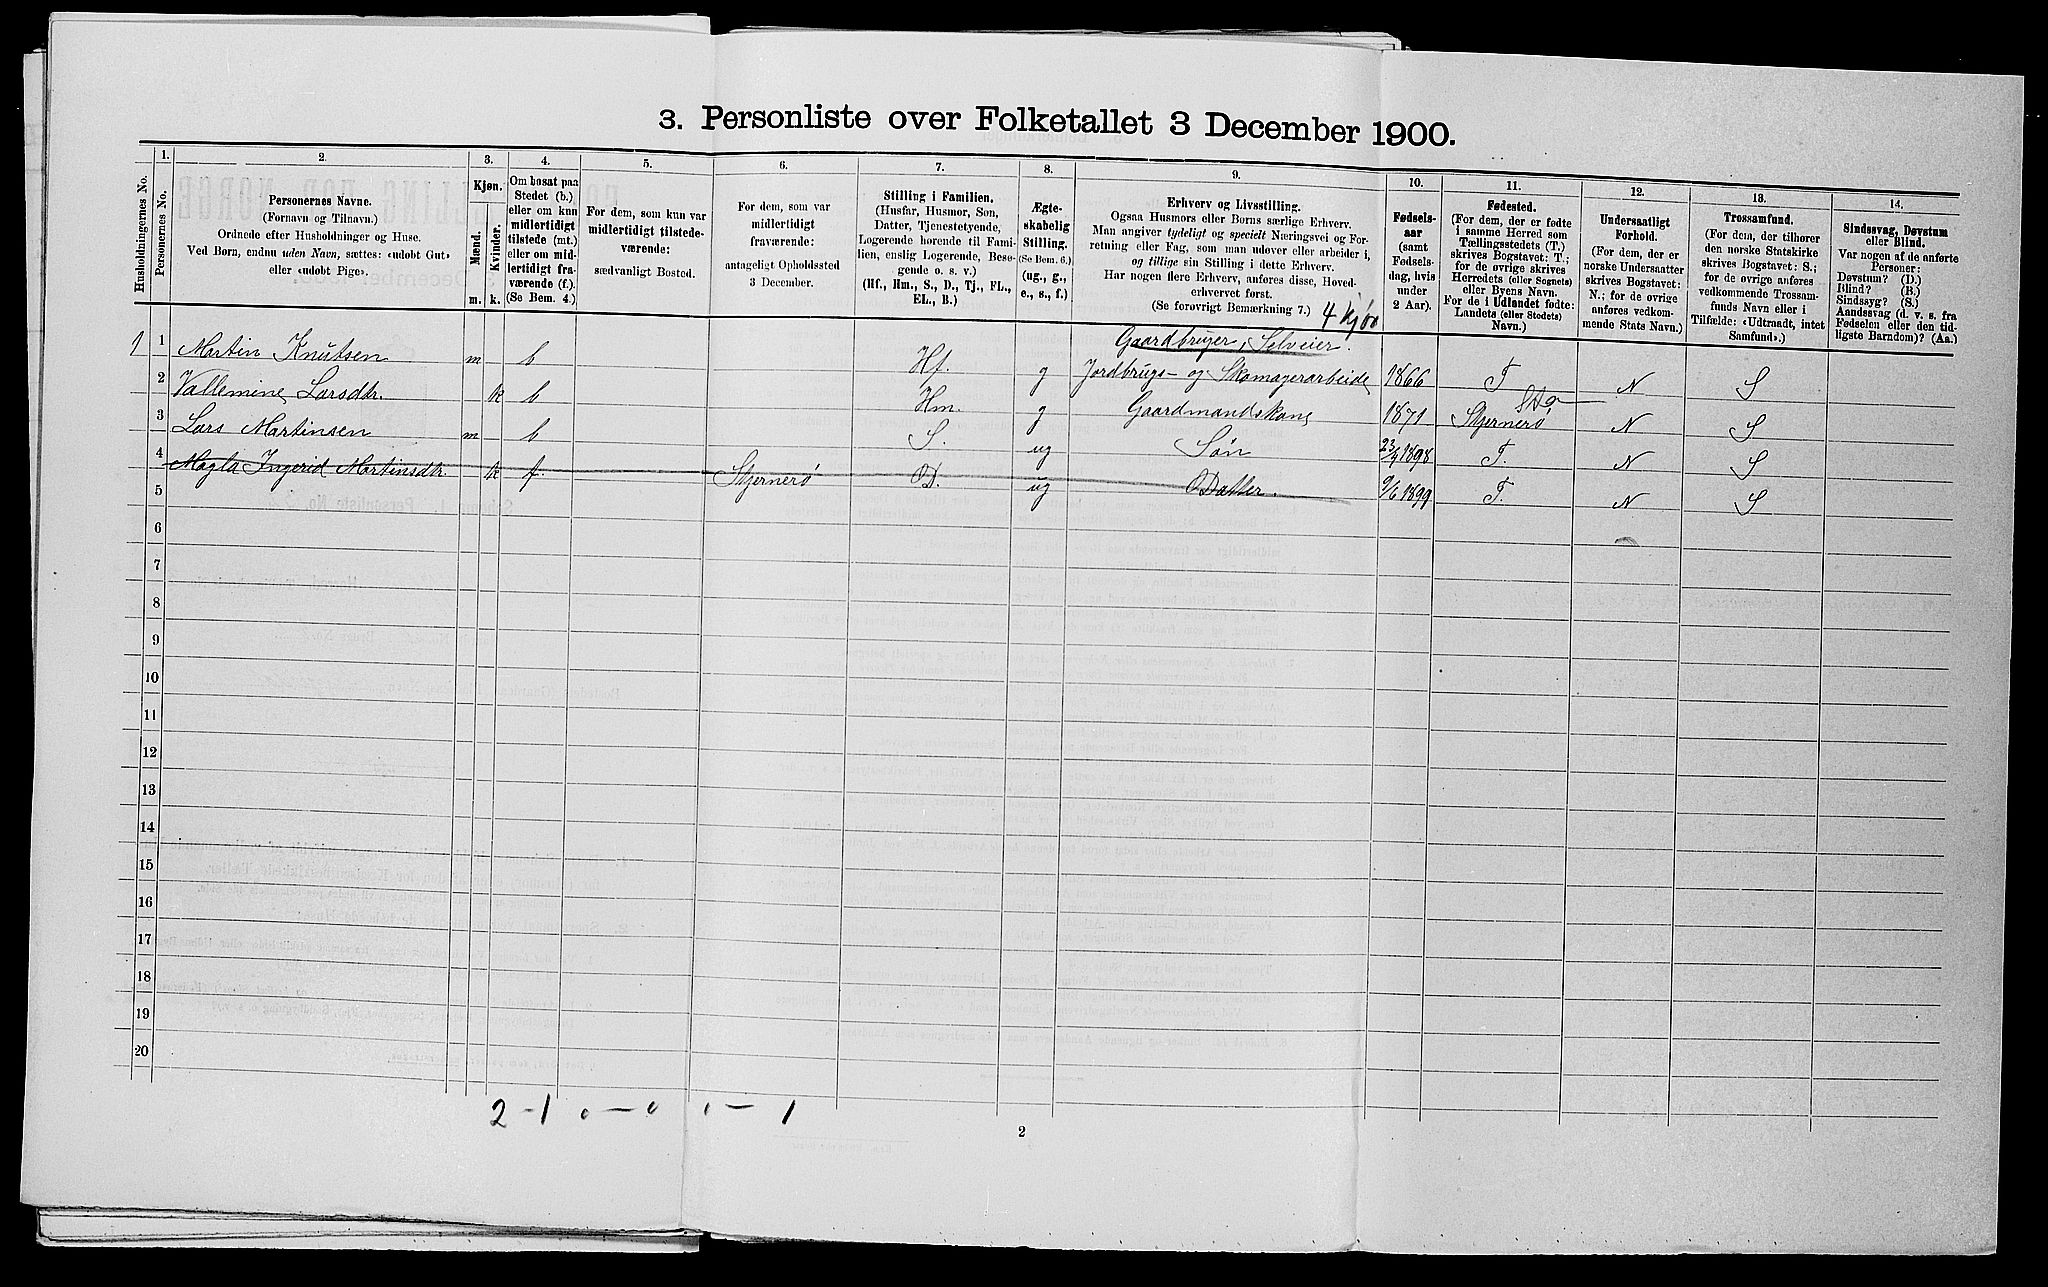 3. Personliste over Folketallet 3 December 1900.
Husholdningernes No.
1.
Personernes No.
2.
Personernes Navne.
(Fornavn og Tilnavn.)
Ordnede efter Husholdninger og Huse.
Ved Børn, endnu uden Navn, sættes: «udøbt Gut»
eller «udøbt Pige».
3.
Kjøn.
Mænd.
Kvinder.
m. k.
4.
Om bosat paa
Stedet (b.)
eller om kun
midlertidigt
tilstede (mt.)
eller om mid-
lertidigt fra-
værende (f.)
(Se Bem. 4.)
5.
For dem, som kun var
midlertidigt tilstede-
værende:
sædvanligt Bosted.
6.
For dem, som var
midlertidigt
fraværende:
antageligt Opholdssted
3 December.
7.
Stilling i Familien.
(Husfar, Husmor, Søn,
Datter, Tjenestetyende,
Logerende hørende til Fami-
lien, enslig Logerende, Besø-
gende o. s. v.)
(Hf., Hm., S., D., Tj., FL.,
EL., B.)
8.
Ægte-
skabelig
Stilling.
(Se Bem. 6.)
(ug., g.,
e., s., f.)
9.
Erhverv og Livsstilling.
Ogsaa Husmors eller Børns særlige Erhverv.
Man angiver tydeligt og specielt Næringsvei og For-
retning eller Fag, som man udøver eller arbeider i,
og tillige sin Stilling i dette Erhverv.
Har nogen flere Erhverv, anføres disse, Hoved-
erhvervet først.
(Se forøvrigt Bemærkning 7.)
10.
Fødsels-
aar
(samt
Fødsels-
dag, hvis
under
2 Aar).
11.
Fødested.
(For dem, der er fødte
i samme Herred som
Tællingsstedets (T.)
skrives Bogstavet: T.;
for de øvrige skrives
Herredets (eller Sognets)
eller Byens Navn.
For de i Udlandet fødte:
Landets (eller Stedets)
Navn.)
12.
Undersaatligt
Forhold.
(For dem, der er
norske Undersaatter
skrives Bogstavet:
N.; for de øvrige
anføres vedkom-
mende Stats Navn.)
13.
Trossamfund.
(For dem, der tilhører
den norske Statskirke
skrives Bogstavet: S.;
for de øvrige anføres
vedkommende Trossam-
funds Navn eller i
Tilfælde: «Udtraadt, intet
Samfund».)
14.
Sindssvag, Døvstum
eller Blind.
Var nogen af de anførte
Personer:
Døvstum? (D.)
Blind? (B.)
Sindssyg? (S.)
Aandssvag (d. v. s. fra
Fødselen eller den tid-
ligste Barndom)? (Aa.)
Gaardbruger, Selveier.
1 1 Martin Knutsen m b Hf. g Jordbrugs- og Skomagerarbeide 1866 T N S
2 Vallemine Larsdtr. k b Hm. g Gaardmandskone 1871 Stjernerø N S
3 Lars Martinsen m b S. ug Søn 23/4 1898 T. N S
4 Magla Ingerid Martinsdtr k f. Stjernerø D. ug Datter. 9/6 1899 T. N S
5
6
7
8
9
10
11
12
13
14
15
16
17
18
19
20
2-1 0-0 0-1
2